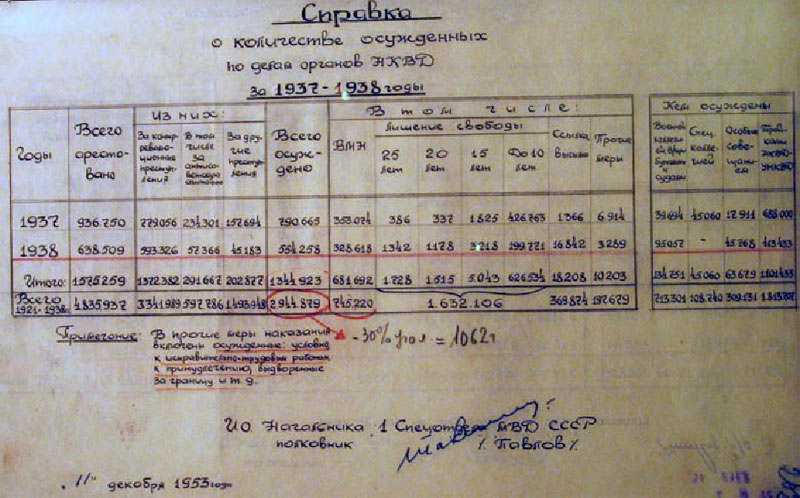 Справка
о количестве осужденных
по делам органов НКВД
за 1937-1938 годы
Годы Всего арестовано Из них: Всего осуждено В том числе: Кем осуждены
За контрреволюционные преступления В том числе за антисоветскую агитацию За другие преступления ВМН лишение свободы Ссылка высылка Прочие меры
25 лет 20 лет 15 лет До 10 лет
Спец. коллегией Особые совещания Тройками НКВД-УНКВД
1937 936.750 779056 234301 157694 790.665 353.074 386 337 1.825 426.763 1.366 6.914 39694 45060 17.911 688.000
1938 638.509 593.326 57.366 45183 554.258 328.618 1342 1178 3218 199.771 16.842 3.289 95057 - 45.768 413.433
Итого: 1575259 1372382 291667 202877 1344923 681692 1.728 1.515 5.043 626.534 18.208 10.203 134.751 45.060 63.679 1101433
Всего 1921-1938 4.835937 3341989 597.786 1493948 2.944.879 745.220 1.632.106 369874 197679 213301 108.740 309.131
Примечание: В прочие меры наказания
включены осужденные: условно
к исправительно-трудовым работам
к принудлечению, выдворенные
за границу и т.д.
-30% угол = 1062т
ИО Начальника 1 Спецотдела МВД СССР
полковник / Павлов /
"11" декабря 1953 года